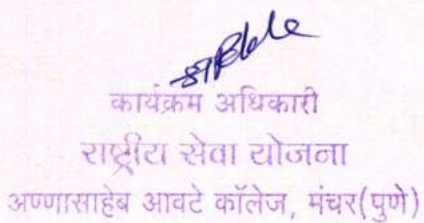 कार्यक्रम अधिकारी
राष्ट्रीय सेवा योजना
अण्णासाहेब आवटे कॉलेज, मंचर(पुणे)